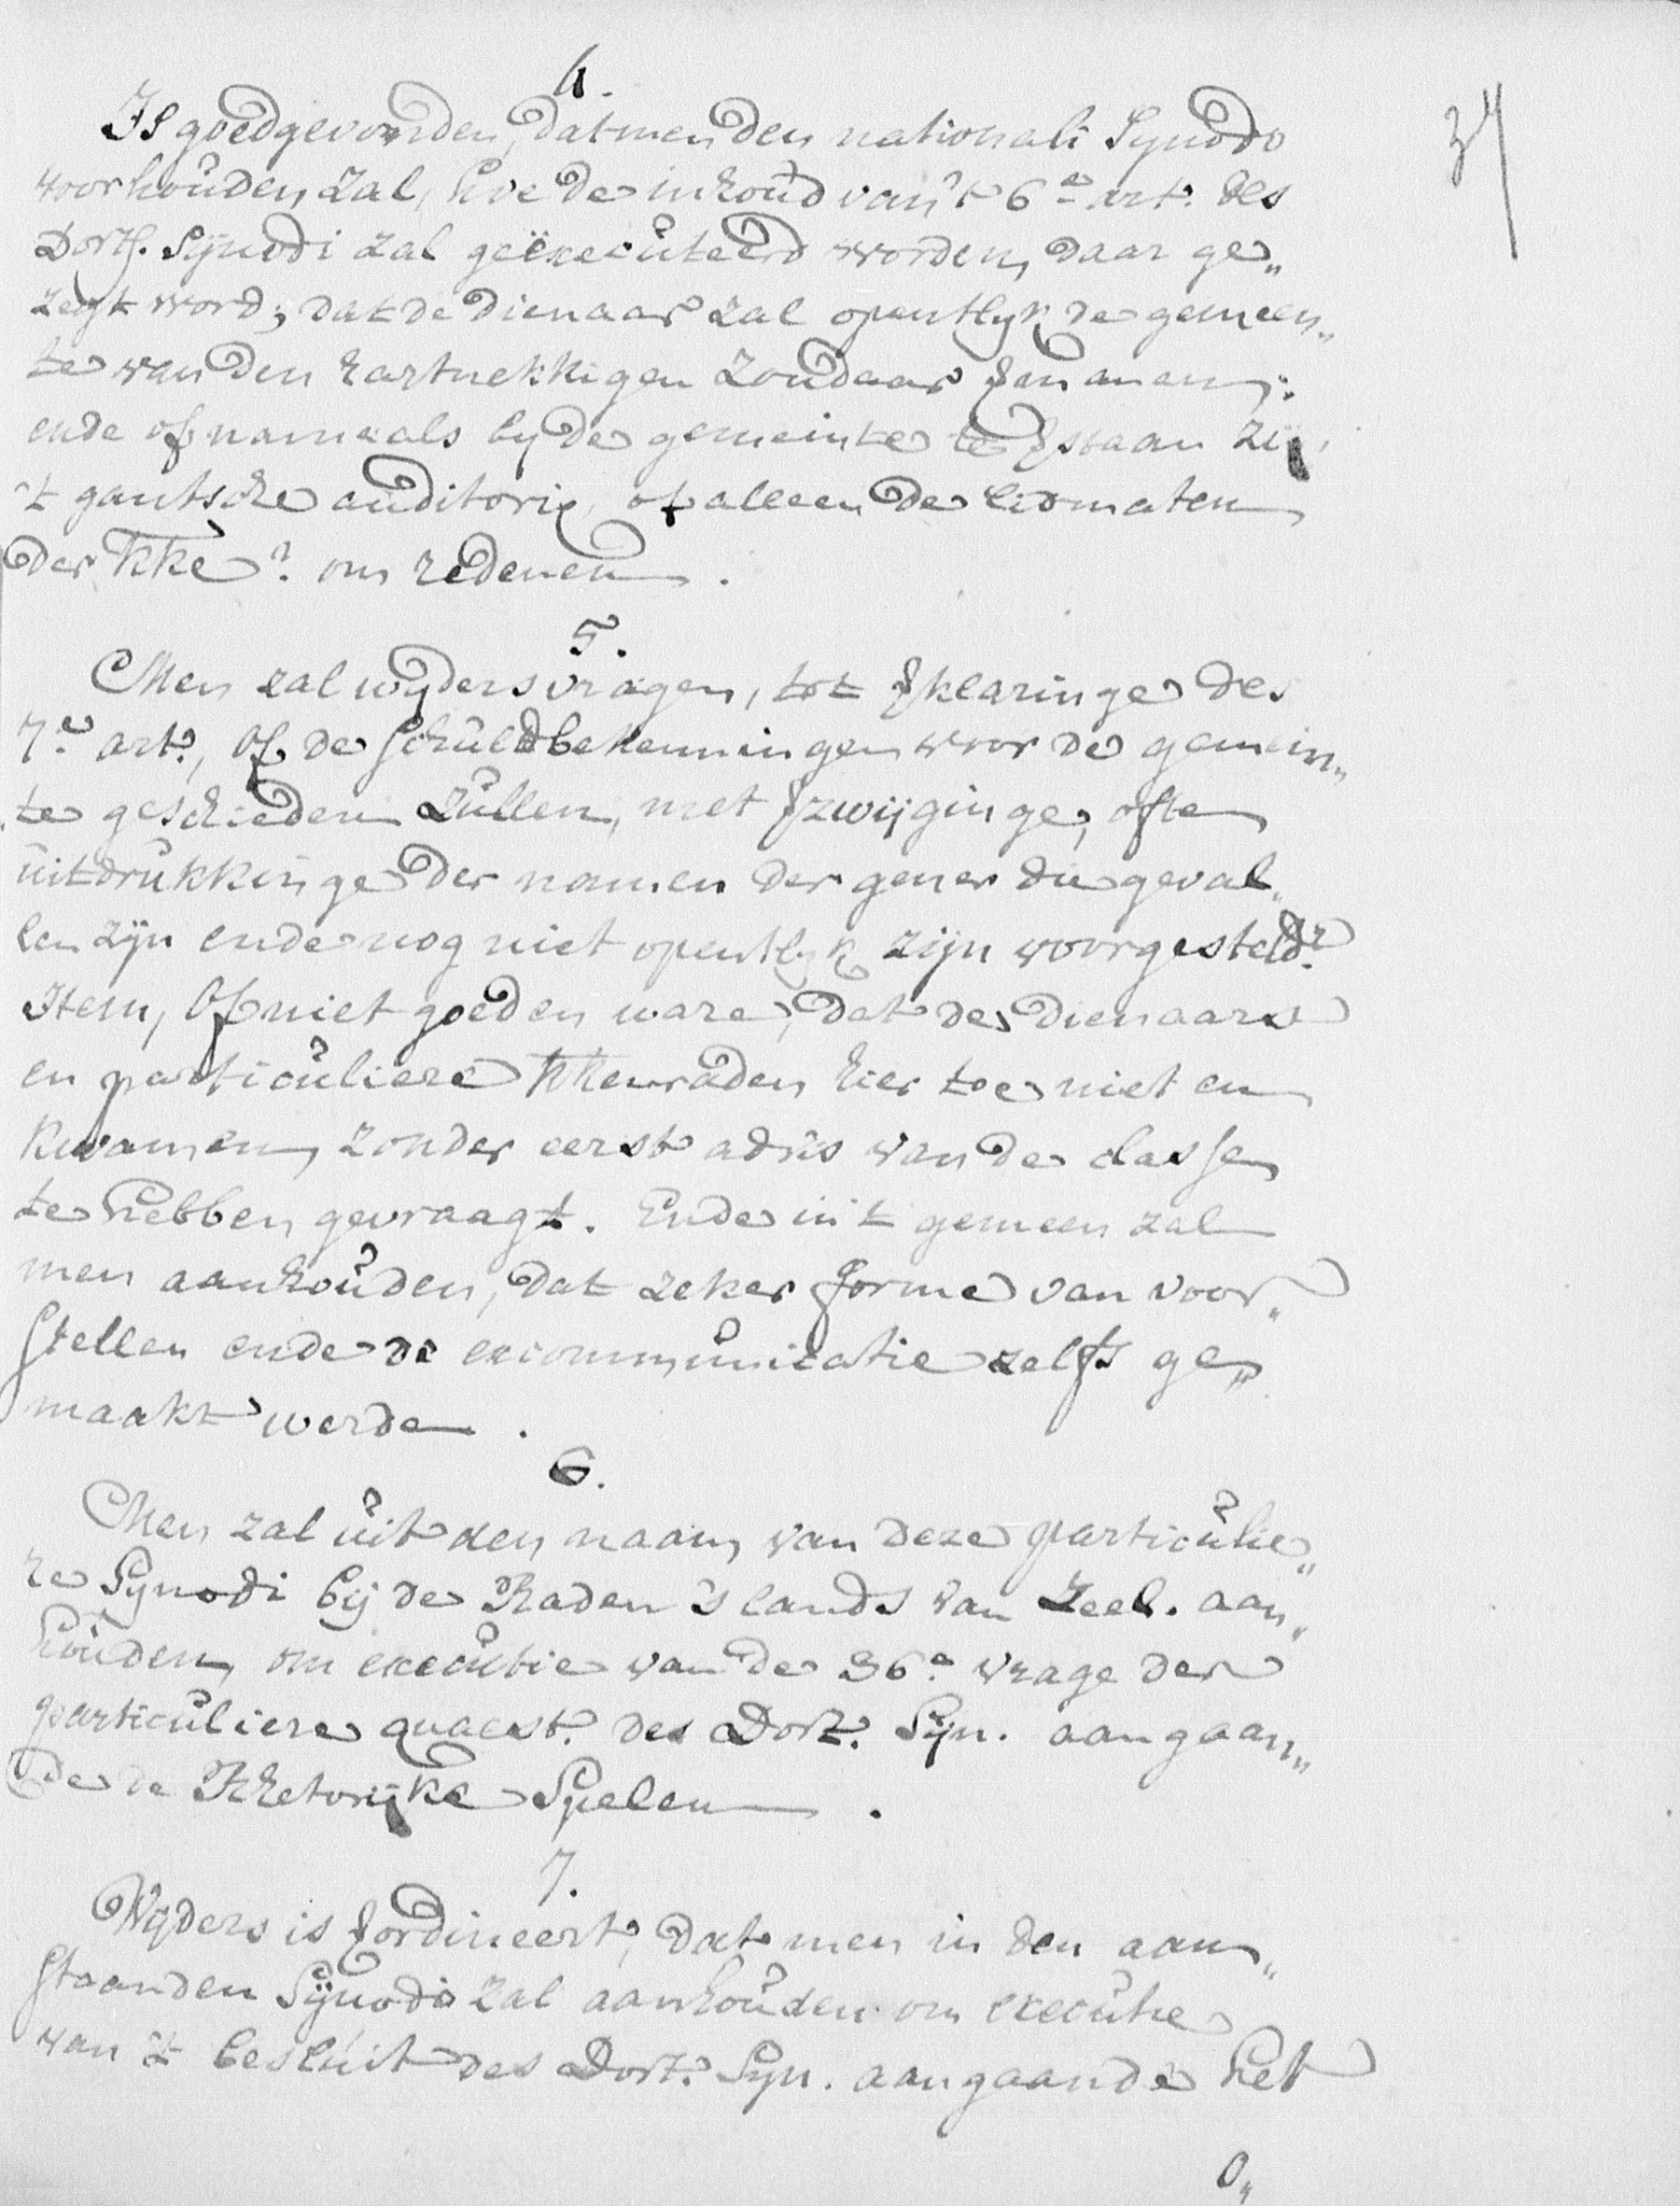 4.
37
Is goedgevonden, dat men den nationali Synodo
voorhouden zal, hoe de inhoud van 't 6e art. des
Dorts. Synodi zal geëxecuteerd worden, daar ge„
zegt word; dat de dienaar zal opentlyk de gemeen„
te van den hartnekkigen zondaar vermanen:
ende of namaals by de gemeinte te verstaan zij,
't gantsche auditorie, of alleen de lidmaten
der kke? om redenen.
5.
Men zal wyders vragen, tot verklaringe des
7e art., Of de schuldbekenningen voor de gemein„
te geschieden zullen, met verzwijginge, ofte
uitdrukkinge der namen der gener die geval„
len zijn ende nog niet opentlyk zijn voorgesteld?
Item, Of niet goed en ware, dat de dienaars
en particuliere kkenraden hier toe niet en
kwamen, zonder eerst advis van de classe
te hebben gevraagt. Ende in 't gemeen zal
men aanhouden, dat zeker forme van voor„
stellen ende de excommunicatie zelfs ge„
maakt werde.
6.
Men zal uit den naam van deze particulie„
re Synodi bij de Raden 's lands van Zeel. aan„
houden, om executie van de 36e vrage der
particuliere quaest. des Dort. Syn. aangaan„
de de Rhetorijke Spelen.
7.
Wyders is verordineert, dat men in den aan„
staanden Synodo zal aanhouden om executie
van 't besluit des Dort. Syn. aangaande het
o„